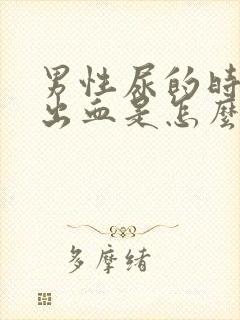 男性尿的时
出血是怎麼
多摩绪